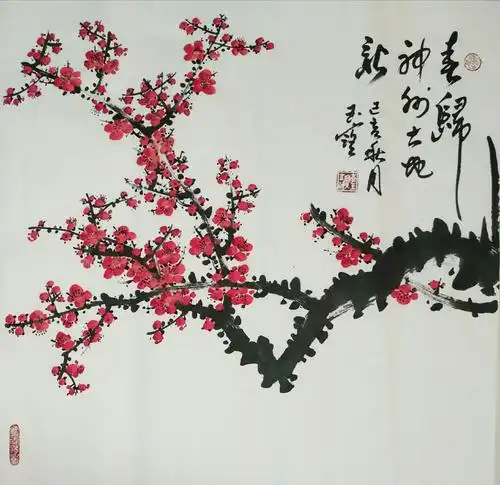 春歸
神州大地
新
己亥秋月
玉